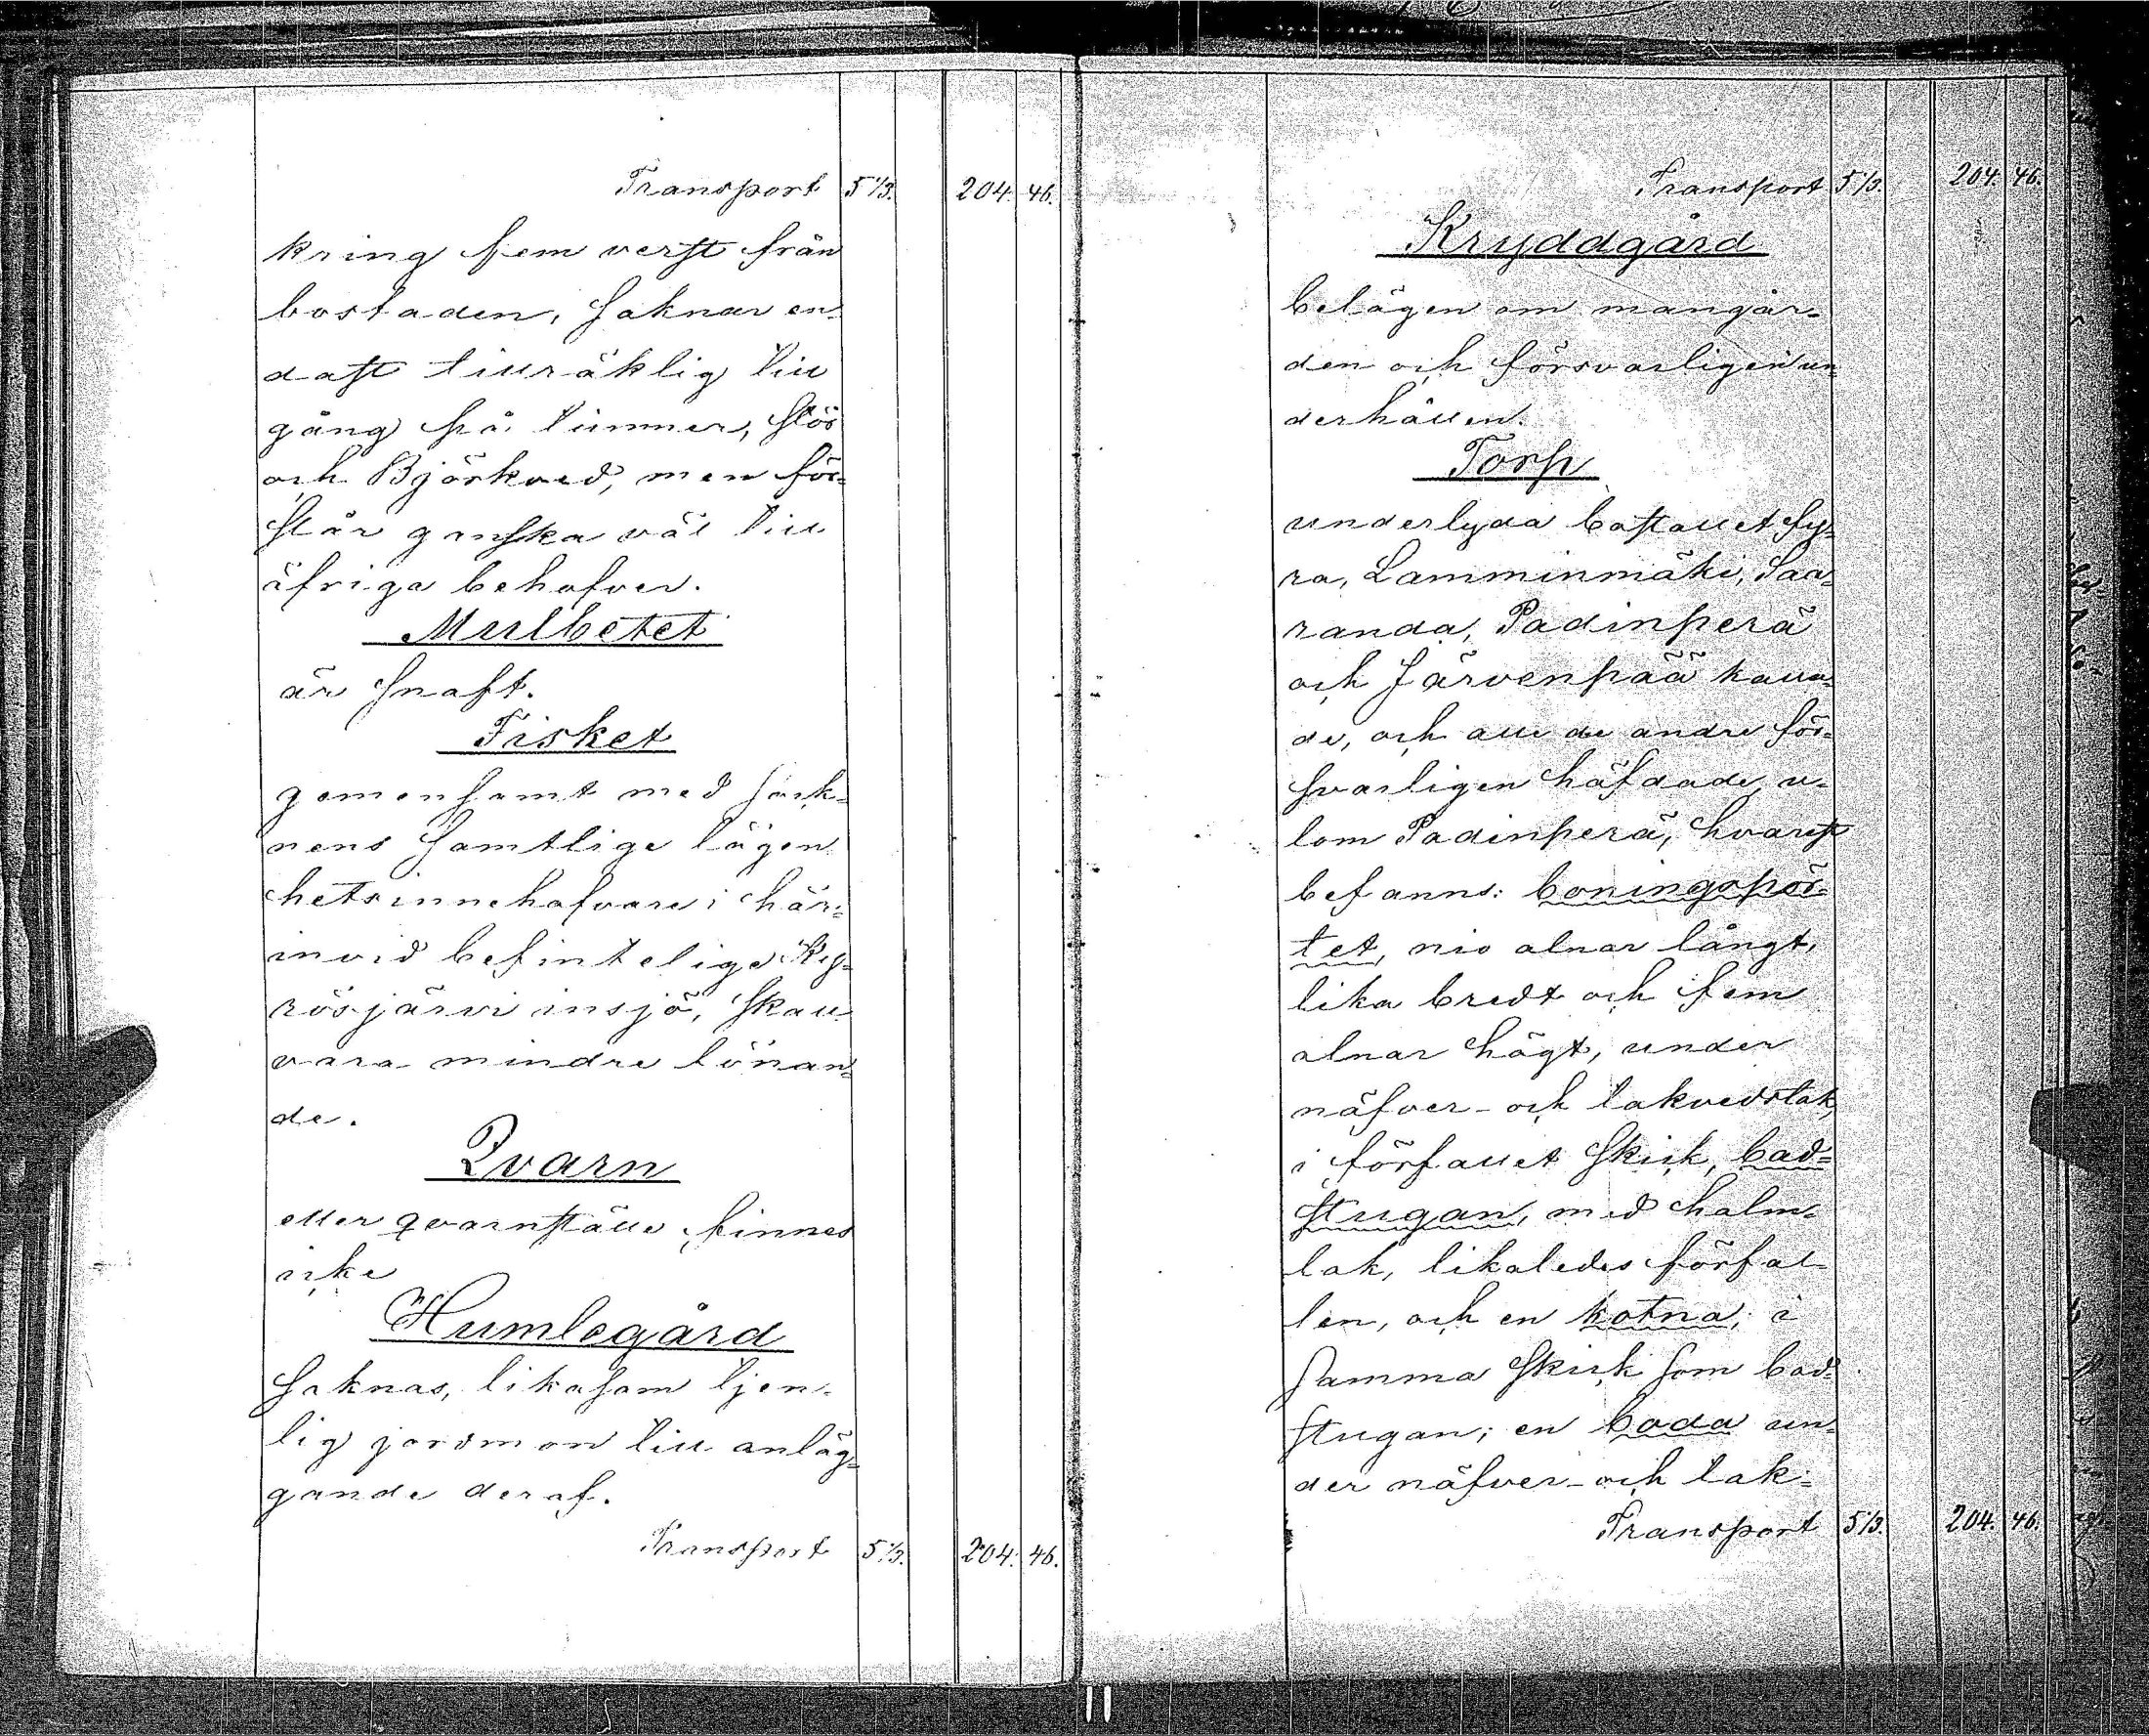 Transport 5 1/3. 204. 46.
kring fem verst från
bostaden, saknar en-
dast tillräklig till
gång på timmer, slös
och Björkved, men för-
slår ganska väl till
öfriga behofver.
Mulbetet
är snaft.
Fisket
gemensamt med sock-
nens samtlige lägen
hetsinnehafvare i här-
invid befintelige Ky-
rösjärvi insjö, skall
vara mindre lönan-
de.
Qvarn
eller qvarnställe finnes
icke
Humlegård
saknas, likasom tjen-
lig jordmon till anläg-
gande deraf.
Transport 5 1/3. 204. 46.
Transport 5 1/3. 204. 46.
Kryddgård
belägen om mangår-
den och försvarligen un-
derhållen.
Torp
underlyda bostället fy-
ra, Lamminmäki, Saa-
randa, Padinperä
och Järvenpää kalla-
de, och alle de andre för-
svarligen häfdade u-
tom Padinperä, hvarest
befanns: boningspör-
tet, nio alnar långt,
lika bredt och fem
alnar högt, under
näfver- och takvedstak,
i förfallet skick, bad-
stugan, med halm-
tak, likaledes förfal-
len, och en kotna, i
samma skick som bad-
stugan; en boda un-
der näfver- och tak-
Transport 5 1/3. 204. 46.
11